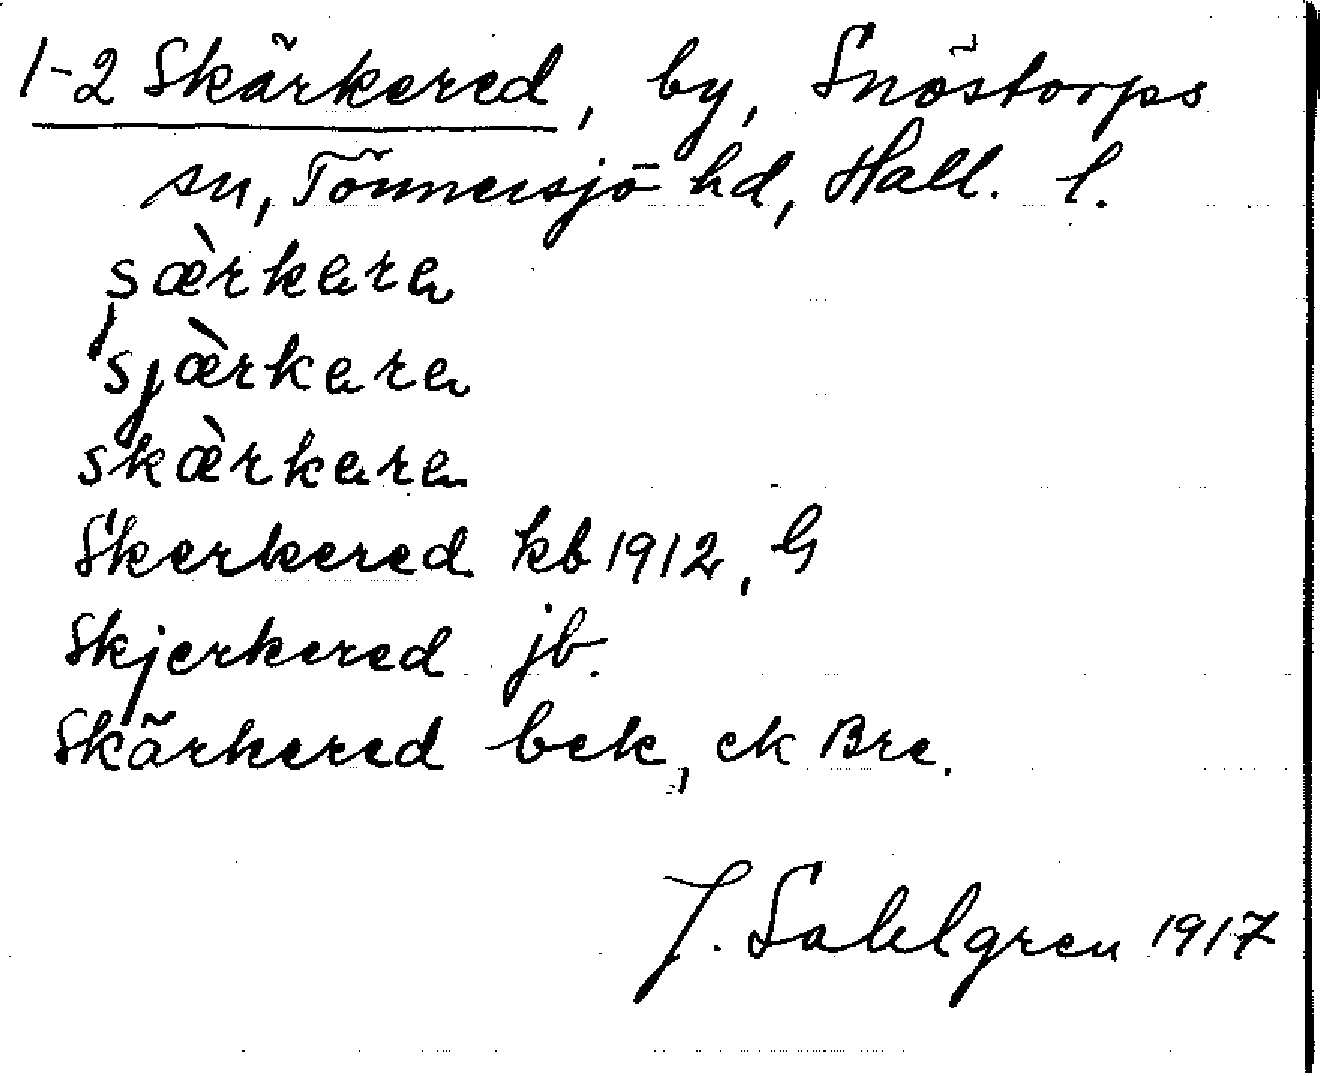 1-2 Skärkered, by, Snöstorps
sn, Tönnersjö hd, Hall. l.
sæ̀rkara
sjæ̀rkara
skæ̀rkara
Skerkered kb 1912, G
Skjerkered jb.
Skärkered bek, ek Bre.
J. Sahlgren 1917